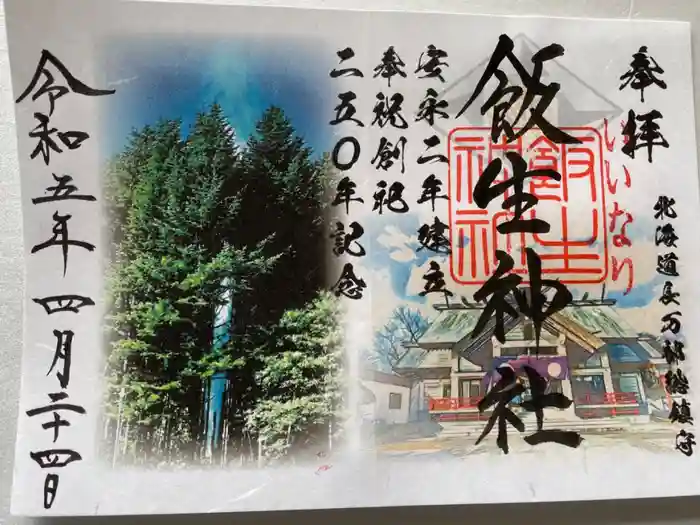 奉拝
いいなり
北海道長万部總鎮守
飯生神社
飯生神社
安永二年建立
奉祝創祀
二五〇年記念
令和五年四月二十四日